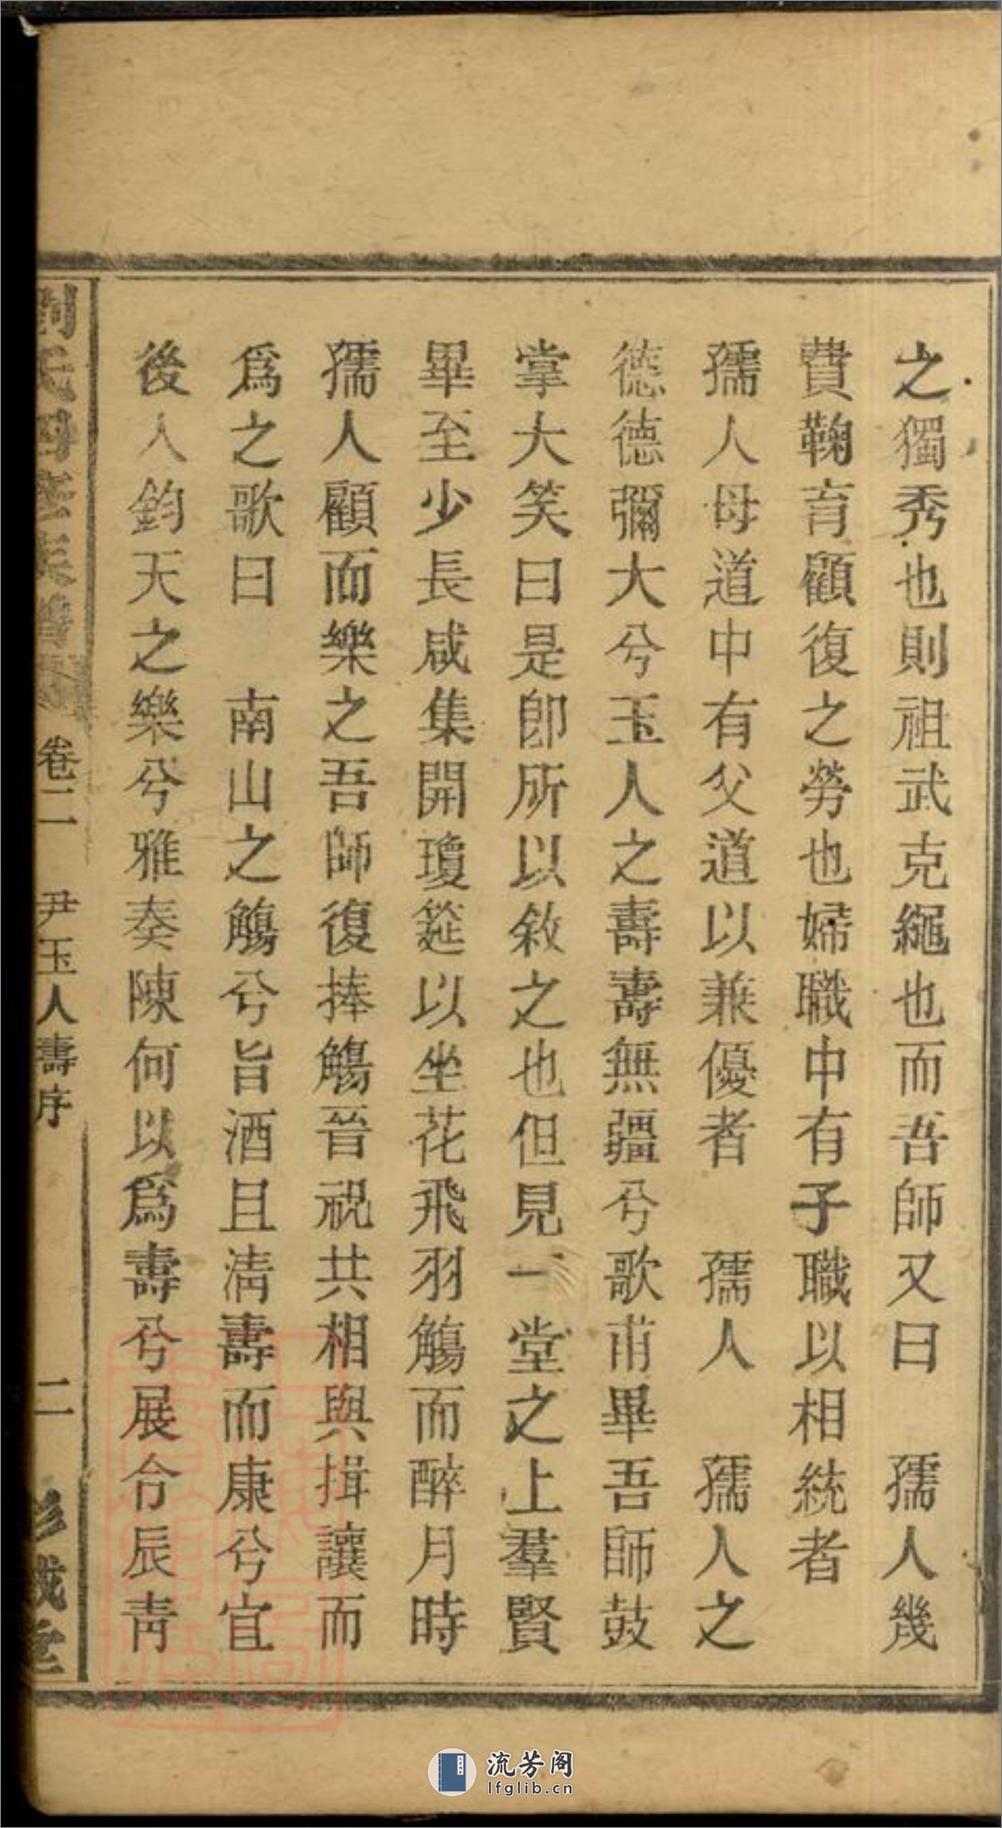 之獨秀也則祖武克繩也而吾師又曰　孺人幾
費鞠育顧復之勞也婦職中有子職以相統者
孺人母道中有父道以兼優者　孺人　孺人之
德德彌大兮玉人之壽壽無疆兮歌甫畢吾師鼓
掌大笑曰是卽所以敘之也但見一堂之上羣賢
畢至少長咸集開瓊筵以坐花飛羽觴而醉月時
孺人顧而樂之吾師復捧觴晉祝共相與揖讓而
爲之歌曰　南山之觴兮旨酒且淸壽而康兮宜
後人鈞天之樂兮雅奏陳何以爲壽兮展令辰靑
劉氏四修族譜　卷二　尹玉人壽序　二　彭城堂
流芳阁
lfglib.cn